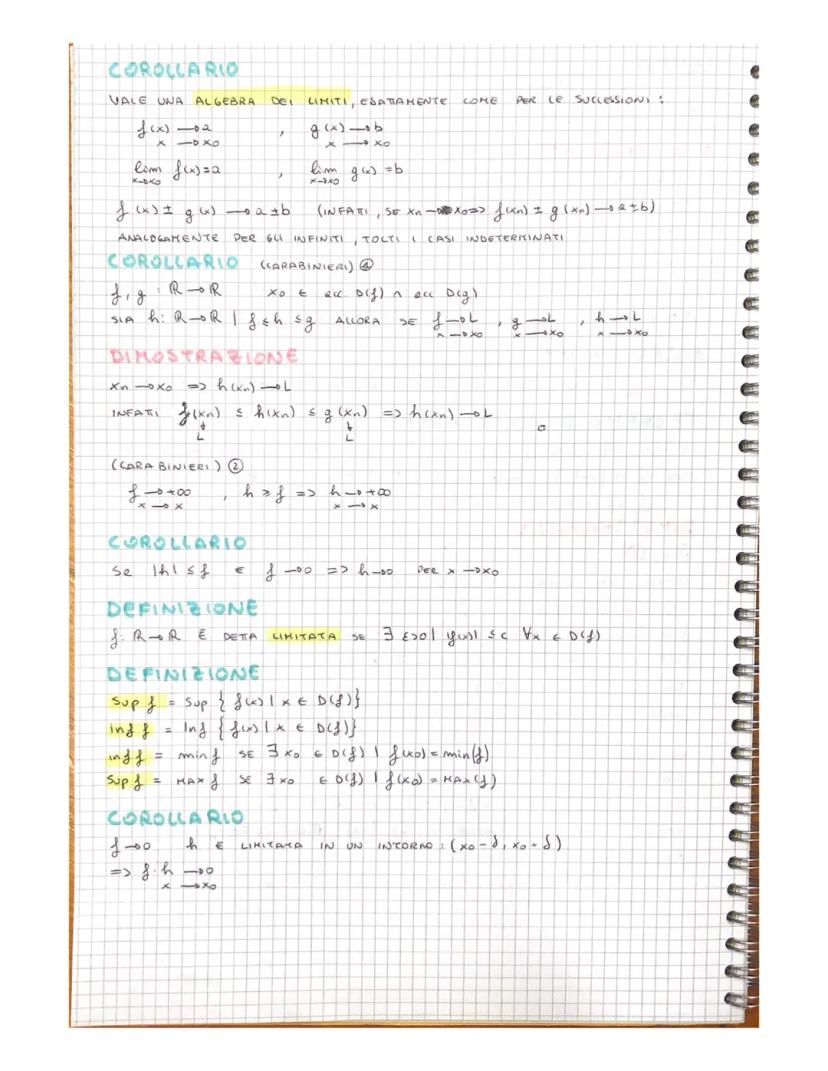 COROLLARIO
VALE UNA ALGEBRA DEI LIMITI, ESATTAMENTE COME PER LE SUCCESSIONI :
f(x) → a , g(x) → b
x → x0 x → x0
lim f(x) = a , lim g(x) = b
x→x0 x→x0
f(x) ± g(x) → a ± b (INFATTI, SE xn → x0 => f(xn) ± g(xn) → a ± b)
ANALOGAMENTE PER GLI INFINITI, TOLTI I CASI INDETERMINATI
COROLLARIO (CARABINIERI) ①
f, g : R → R x0 ∈ acc D(f) ∩ acc D(g)
SIA h: R → R | f ≤ h ≤ g ALLORA SE f → L , g → L , h → L
x → x0 x → x0 x → x0
DIMOSTRAZIONE
xn → x0 => h(xn) → L
INFATI f(xn) ≤ h(xn) ≤ g(xn) => h(xn) → L
↓ ↓
L L
(CARABINIERI) ②
f → +∞ , h ≥ f => h → +∞
x → x x → x
COROLLARIO
Se |h| ≤ f E f → 0 => h → 0 PER x → x0
DEFINIZIONE
f: R → R È DETTA LIMITATA SE ∃ ε>0 | |f(x)| ≤ c ∀x ∈ D(f)
DEFINIZIONE
Sup f = Sup { f(x) | x ∈ D(f)}
inf f = Inf { f(x) | x ∈ D(f)}
inf f = min f SE ∃ x0 ∈ D(f) | f(x0) = min(f)
Sup f = MAX f SE ∃ x0 ∈ D(f) | f(x0) = MAX(f)
COROLLARIO
f → 0 h È LIMITATA IN UN INTORNO : (x0 - δ, x0 + δ)
=> f · h → 0
x → x0